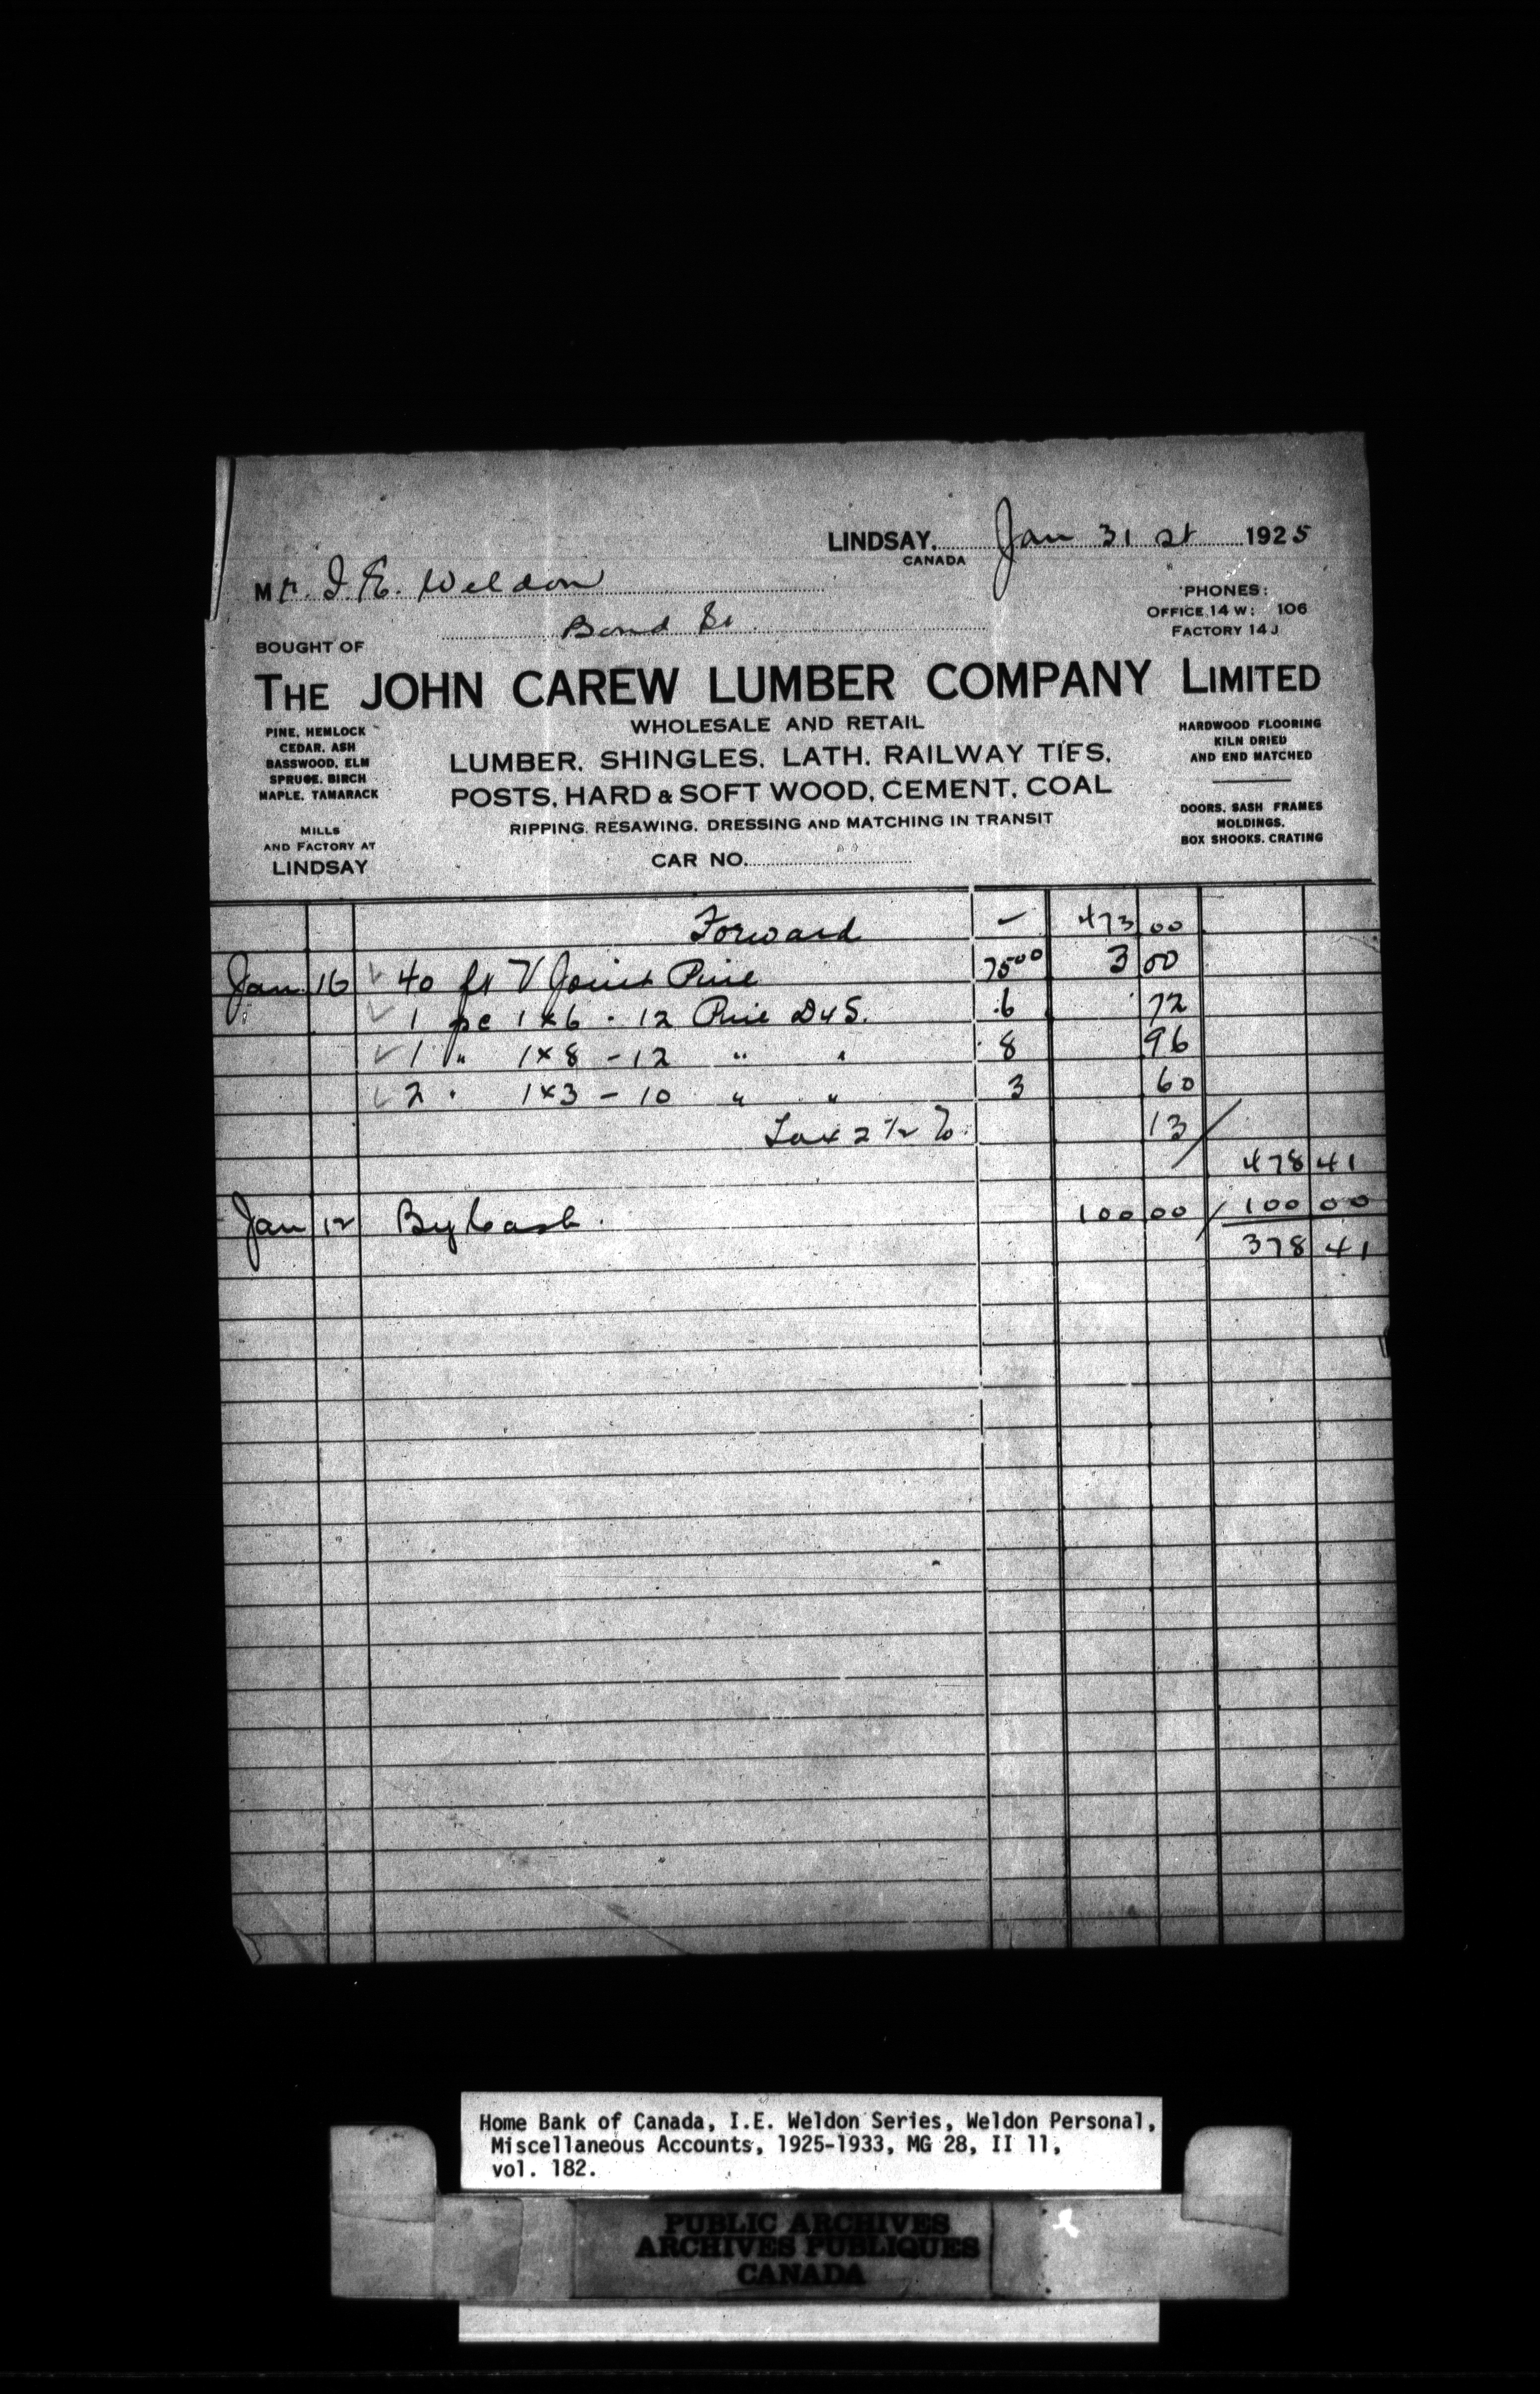 LINDSAY, Jan 31 st 1925
CANADA
Mr. I. E. Weldon
Bond St.
'PHONES:
OFFICE 14 W: 106
FACTORY 14 J
BOUGHT OF
THE JOHN CAREW LUMBER COMPANY LIMITED
WHOLESALE AND RETAIL
LUMBER, SHINGLES, LATH, RAILWAY TIES,
POSTS, HARD & SOFT WOOD, CEMENT, COAL
RIPPING, RESAWING, DRESSING AND MATCHING IN TRANSIT
CAR NO.
PINE, HEMLOCK
CEDAR, ASH
BASSWOOD, ELM
SPRUCE, BIRCH
MAPLE, TAMARACK
MILLS
AND FACTORY AT
LINDSAY
HARDWOOD FLOORING
KILN DRIED
AND END MATCHED
DOORS, SASH FRAMES
MOLDINGS,
BOX SHOOKS, CRATING
Forward – 473 00
Jan 16 ✓ 40 ft V Joint Pine 75 00 3 00
" ✓ 1 pc 1 x 6 - 12 Pine D4S. .6 72
✓ 1 " 1 x 8 - 12 " " 8 96
✓ 2 " 1 x 3 - 10 " " 3 60
Tax 2 1/2 % 13
478 41
Jan 12 By Cash. 100 00 100 00
378 41
Home Bank of Canada, I.E. Weldon Series, Weldon Personal,
Miscellaneous Accounts, 1925-1933, MG 28, II 11,
vol. 182.
PUBLIC ARCHIVES
ARCHIVES PUBLIQUES
CANADA